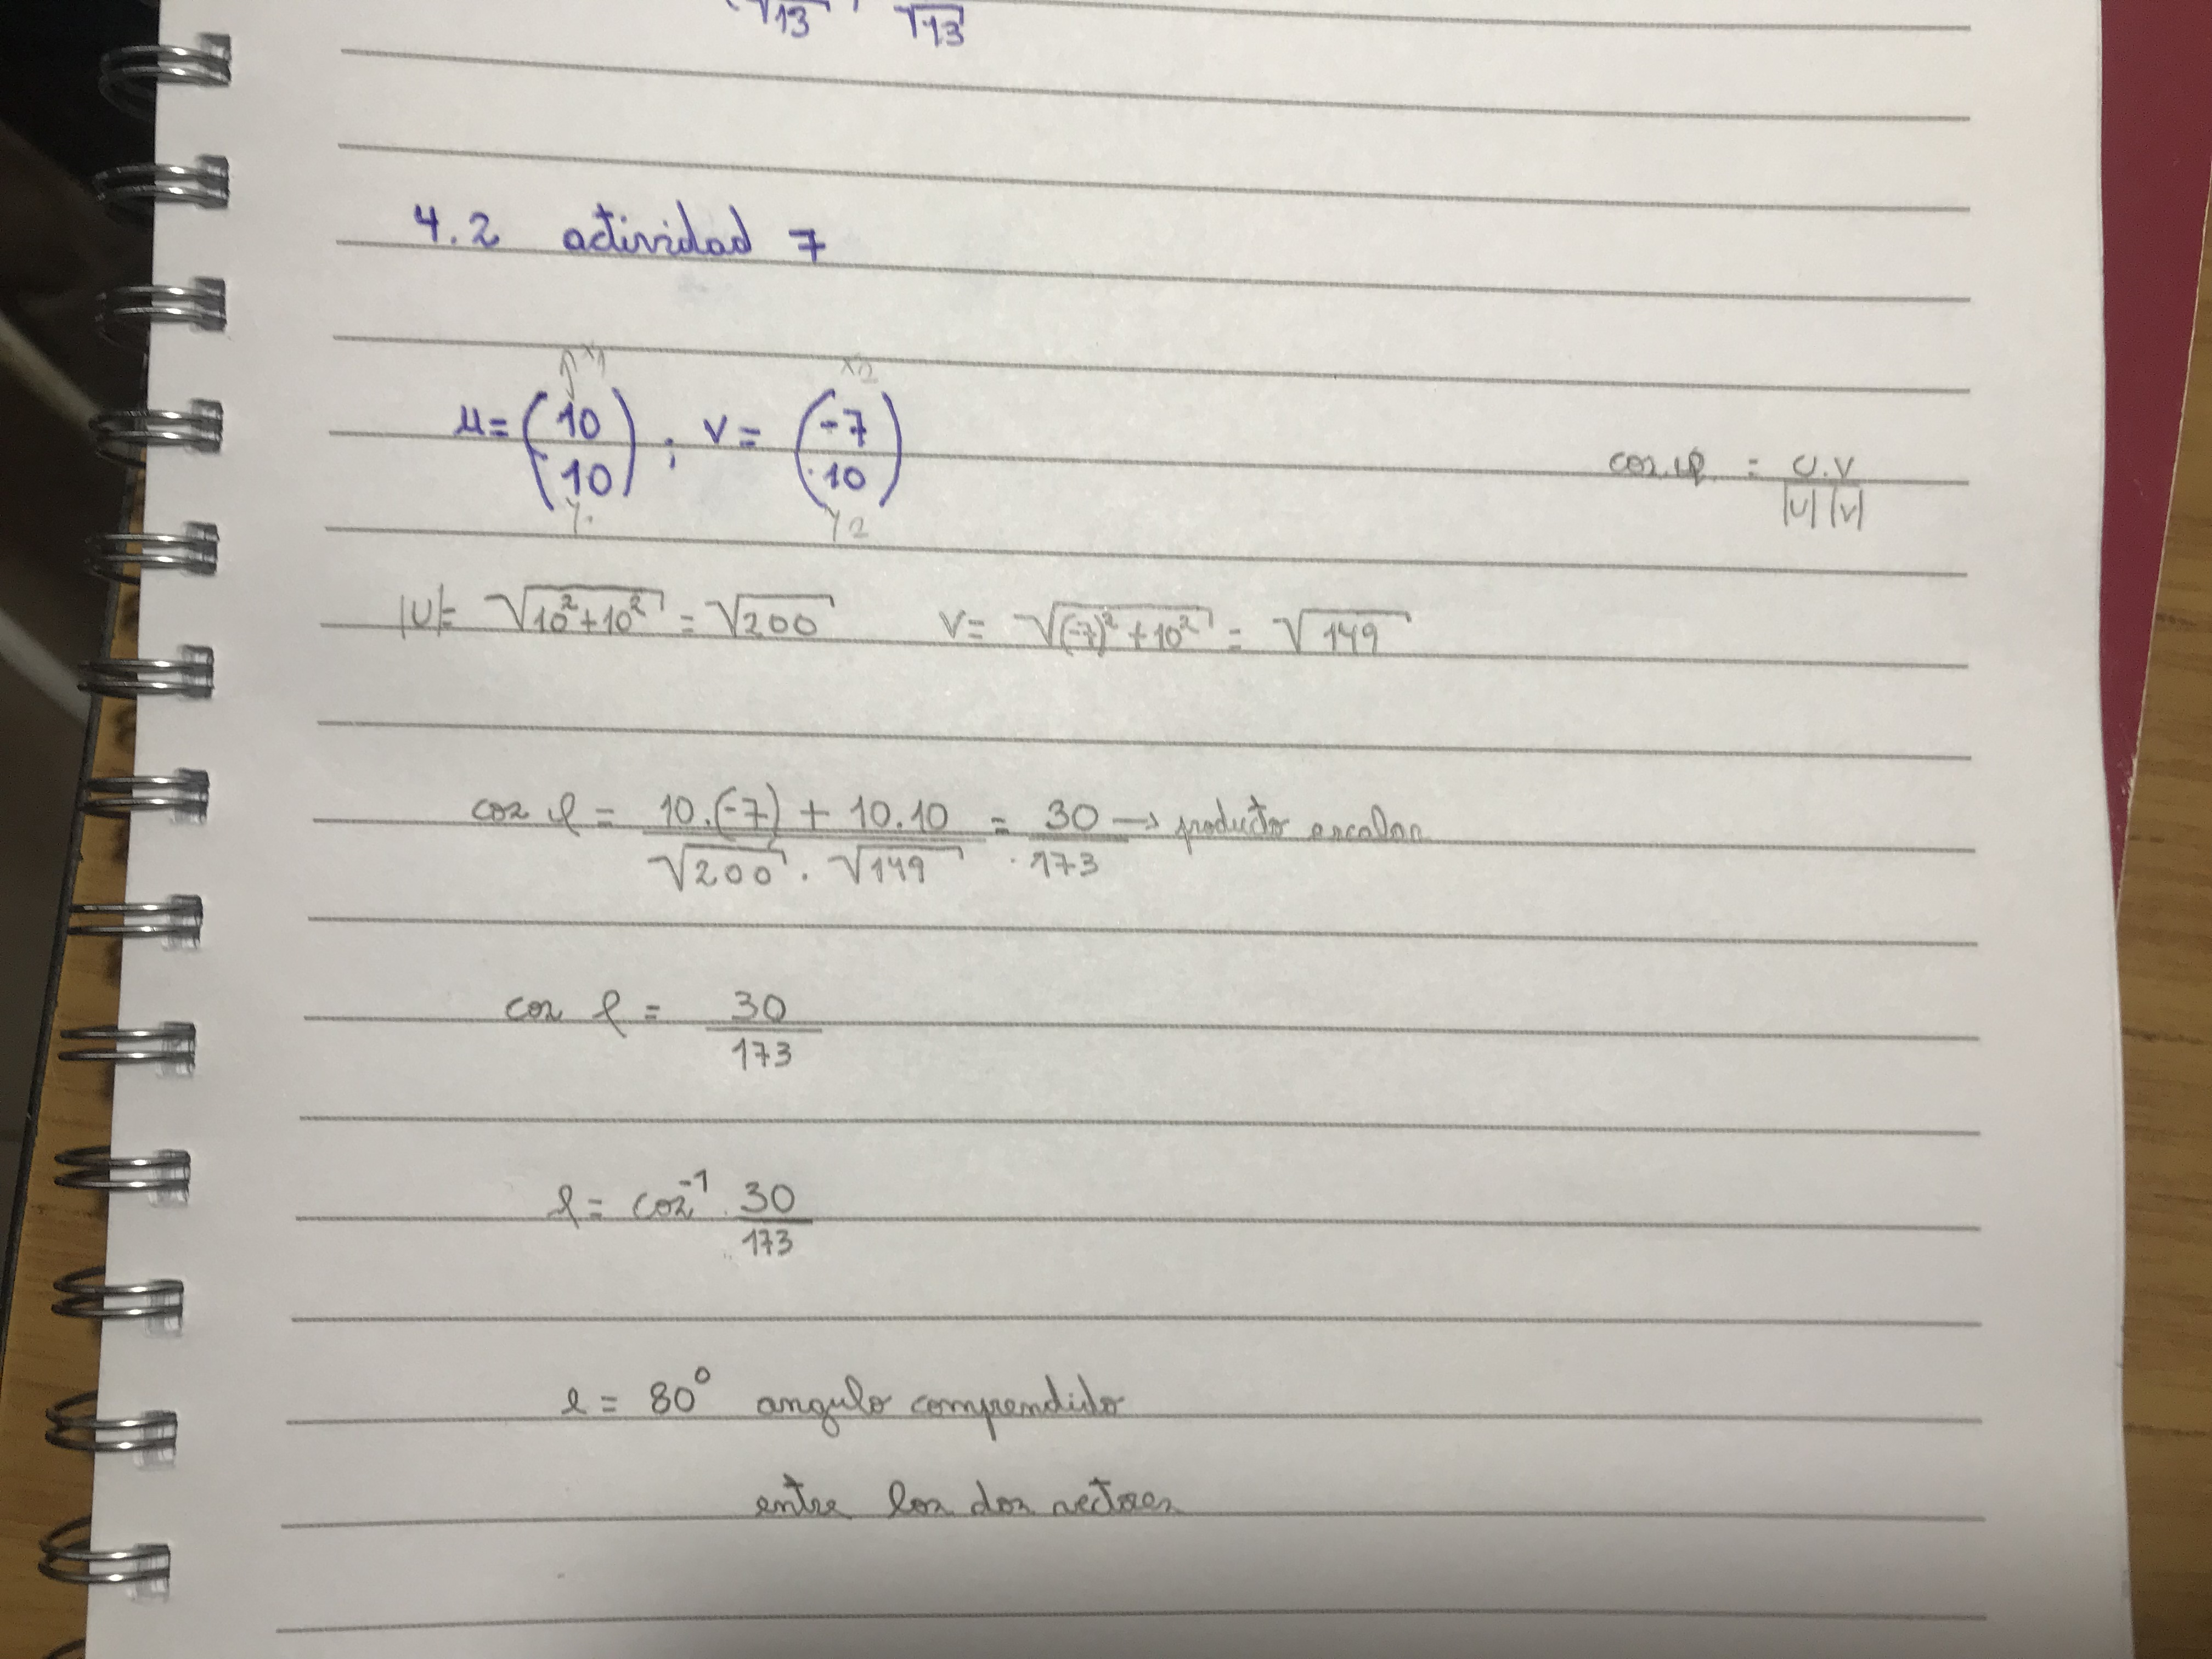 √13 , √13
4.2 actividad 7
x1 x2
μ = (10 10) ; v = (-7 10)
y1 y2
cos φ = U.V / |U| |V|
|U| = √10² + 10² = √200 V = √(-7)² + 10² = √149
cos φ = 10.(-7) + 10.10 = 30 → producto escalar
√200 . √149 . 173
cos φ = 30
173
φ = cos⁻¹ . 30
173
φ = 80° angulo comprendido
entre los dos vectores